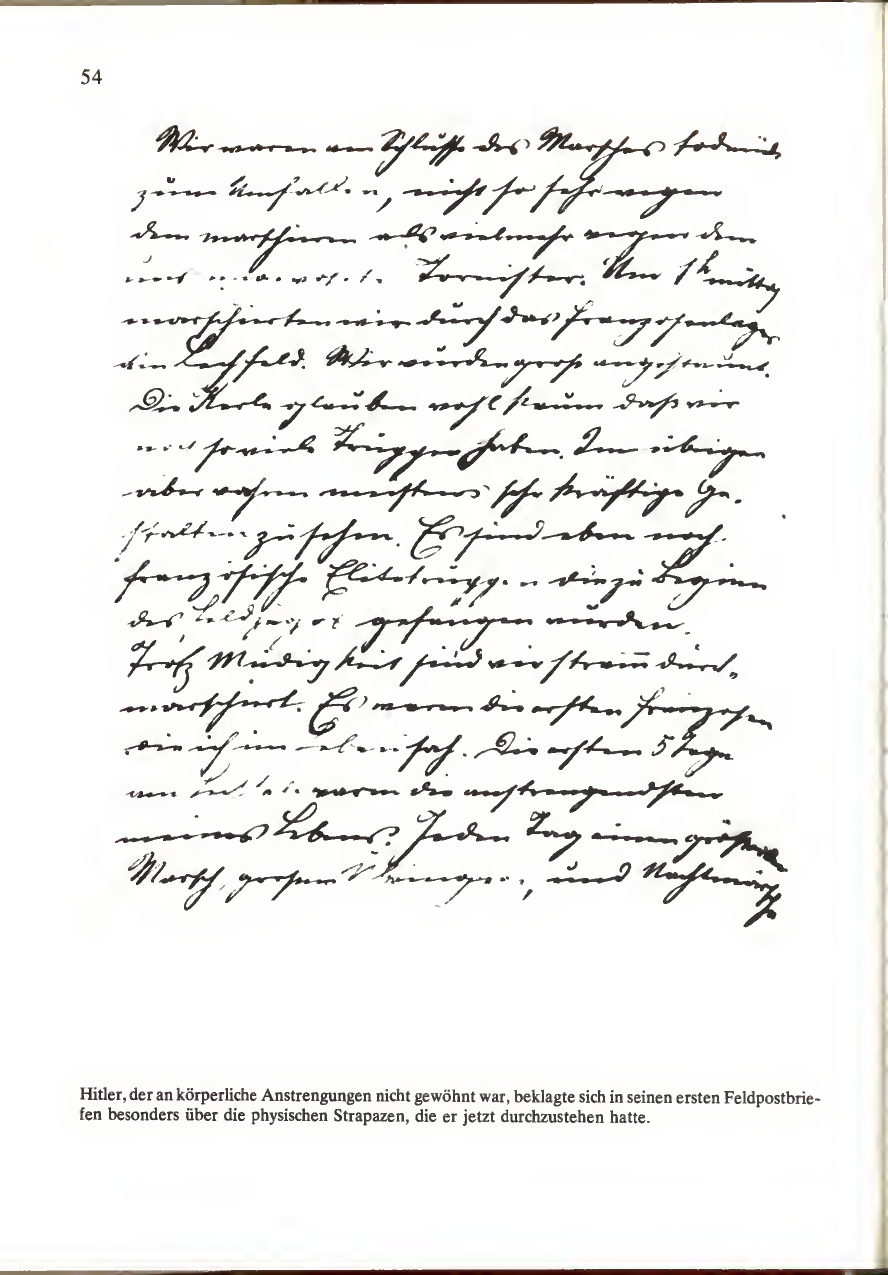 54
Wir waren am Schlusse des Marsches todmüde
zum Umfallen, nicht so sehr wegen
dem marschieren als vielmehr wegen dem
uns Tornister. Um 1h mittag
marschierten wir durch das Franzosenlager
ein Lechfeld. Wir wurden groß angestaunt.
Die Kerle glauben wohl kaum daß wir
noch so viele Truppen haben. Im übrigen
aber wahren meistens sehr kräftige Ge-
stalten zu sehen. Es sind eben noch
französische Elitetruppen die zu Beginn
des Feldzuges gefangen wurden.
Trotz Müdigkeit sind wir stramm durch-
marschiert. Es waren die ersten Franzosen
die ich im Leben sah. Die ersten 5 Tage
am waren die anstrengendsten
meines Lebens. Jeden Tag einen größeren
Marsch, grosse und Nachtmärsche
Hitler, der an körperliche Anstrengungen nicht gewöhnt war, beklagte sich in seinen ersten Feldpostbrie-
fen besonders über die physischen Strapazen, die er jetzt durchzustehen hatte.